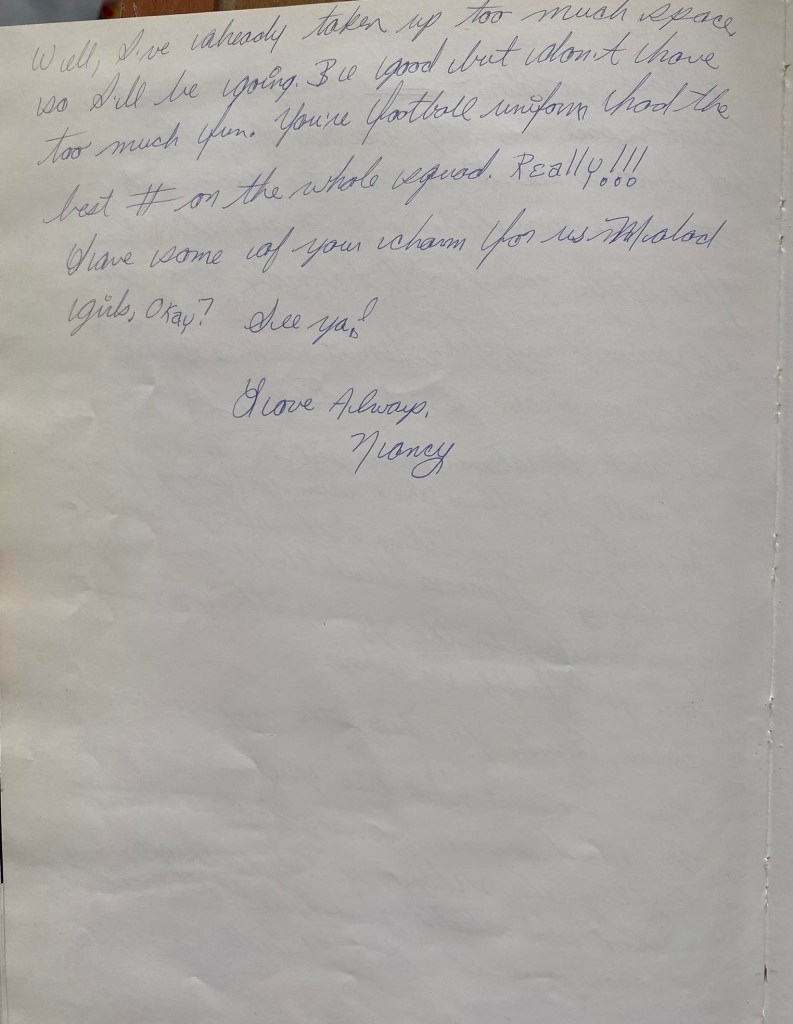 Well, I've already taken up too much space
so I'll be going. Be good but don't have
too much fun. You're football uniform had the
best # on the whole squad. Really!!!
Save some of your charm for us Malad
girls, Okay? See ya!
Love Always,
Nancy